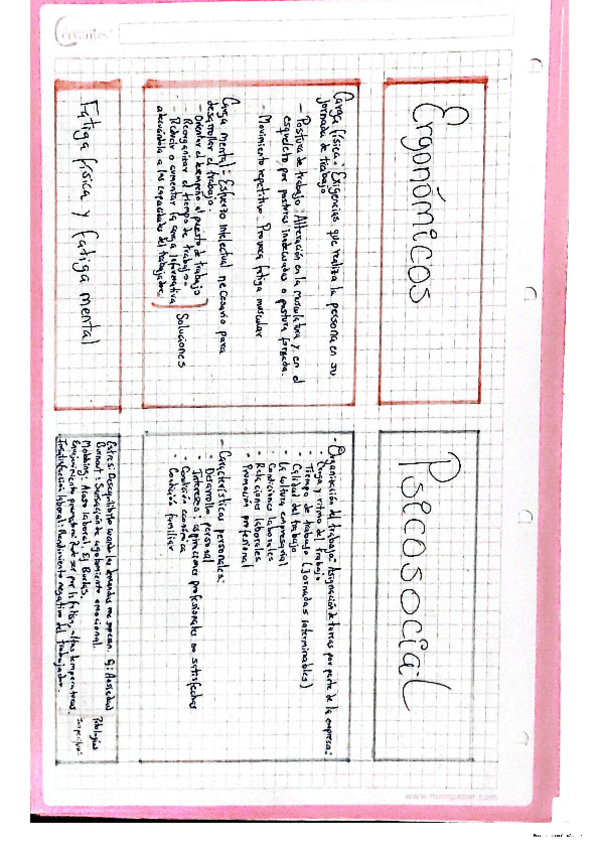 Cervantes
Ergonómicos
Carga física = Exigencias que realiza la persona en su
jornada de trabajo
- Postura de trabajo: Alteración en la musculatura y en el
esqueleto, por posturas inadecuadas o postura forzada.
- Movimiento repetitivo - Provoca fatiga muscular
Carga mental = Esfuerzo intelectual necesario para
desarrollar el trabajo.
- Orientar el desempeño al puesto de trabajo
- Reorganizar el tiempo de trabajo
- Reducir o aumentar la carga informativa
adecuándola a las capacidades del trabajador
Soluciones
Fatiga física y fatiga mental
Psicosocial
- Organización del trabajo= Asignación de tareas por parte de la empresa:
Carga y ritmo del trabajo
Tiempo de trabajo (Jornadas interminables)
Calidad del trabajo
La cultura empresarial
Condiciones laborales
Relaciones laborales
Promoción profesional
- Características personales:
Desarrollo personal
Intereses: aspiraciones profesionales no satisfechas
Condición económica
Condición familiar
Estrés: Desequilibrio cuando las demandas me superan. Ej: Ansiedad
Burnout: Sensación de agotamiento emocional.
Mobbing: Acoso laboral, Ej. Burlas.
Envejecimiento prematuro: Puede ser por la fatiga, altas temperaturas.
Insatisfacción laboral: Rendimiento negativo del trabajador.
Patologías